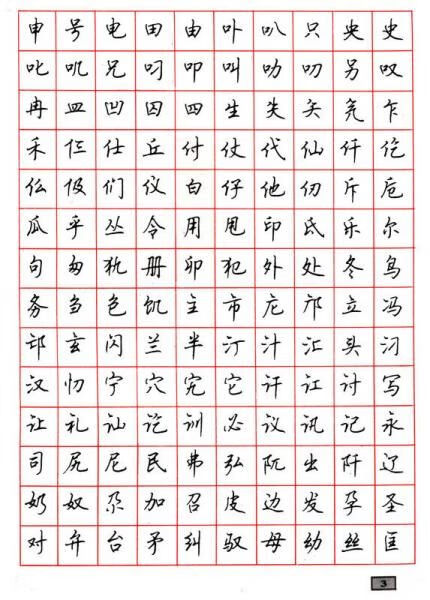 申号电田由卟叭只央史
叱叽兄叼叩叫叻叨另叹
冉皿凹囚四生失矢尧乍
禾仨仕丘付仗代仙仟仡
仫伋们仪白仔他仞斥卮
瓜乎丛令用甩印氐乐尔
句匆犰册卯犯外处冬鸟
务刍色饥主市庀邝立冯
邙玄闪兰半汀汁汇头汈
汉忉宁穴宄它讦讧讨写
让礼讪讫训必议讯记永
司尻尼民弗弘阢出阡辽
奶奴尕加召皮边发孕圣
对弁台矛纠驭母幼丝匡
3